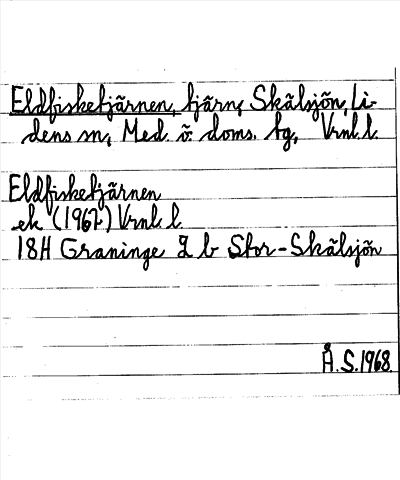 Eldfisketjärnen, tjärn, Skälsjön, Li-
dens sn, Med. ö. doms. tg, Vrnl. l.
Eldfisketjärnen
ek (1967) Vrnl. l.
18H Graninge 2 b Stor-Skälsjön
Å.S.1968.